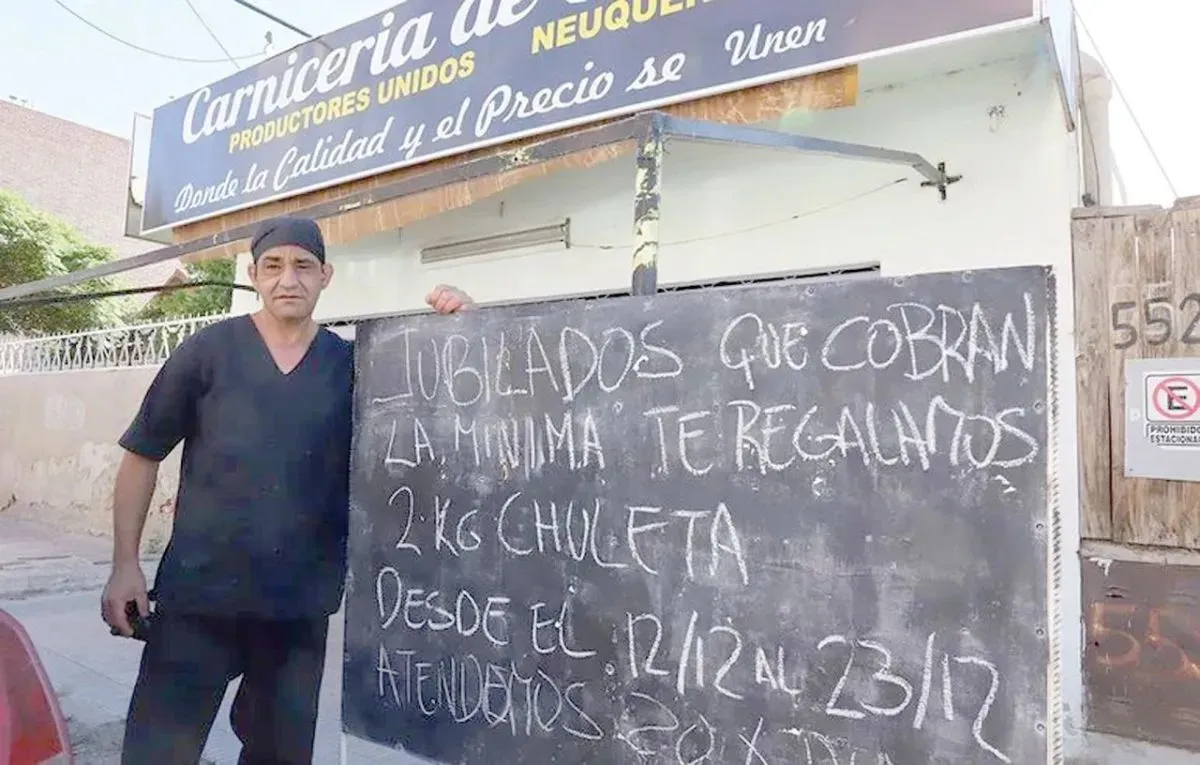 Carniceria de
PRODUCTORES UNIDOS NEUQUEN
Donde la Calidad y el Precio se Unen
JUBILADOS QUE COBRAN
LA MINIMA TE REGALAMOS
2 KG CHULETA
DESDE EL 12/12 AL 23/12
ATENDEMOS 20 X DIA
552
E
PROHIBIDO
ESTACIONAR
55